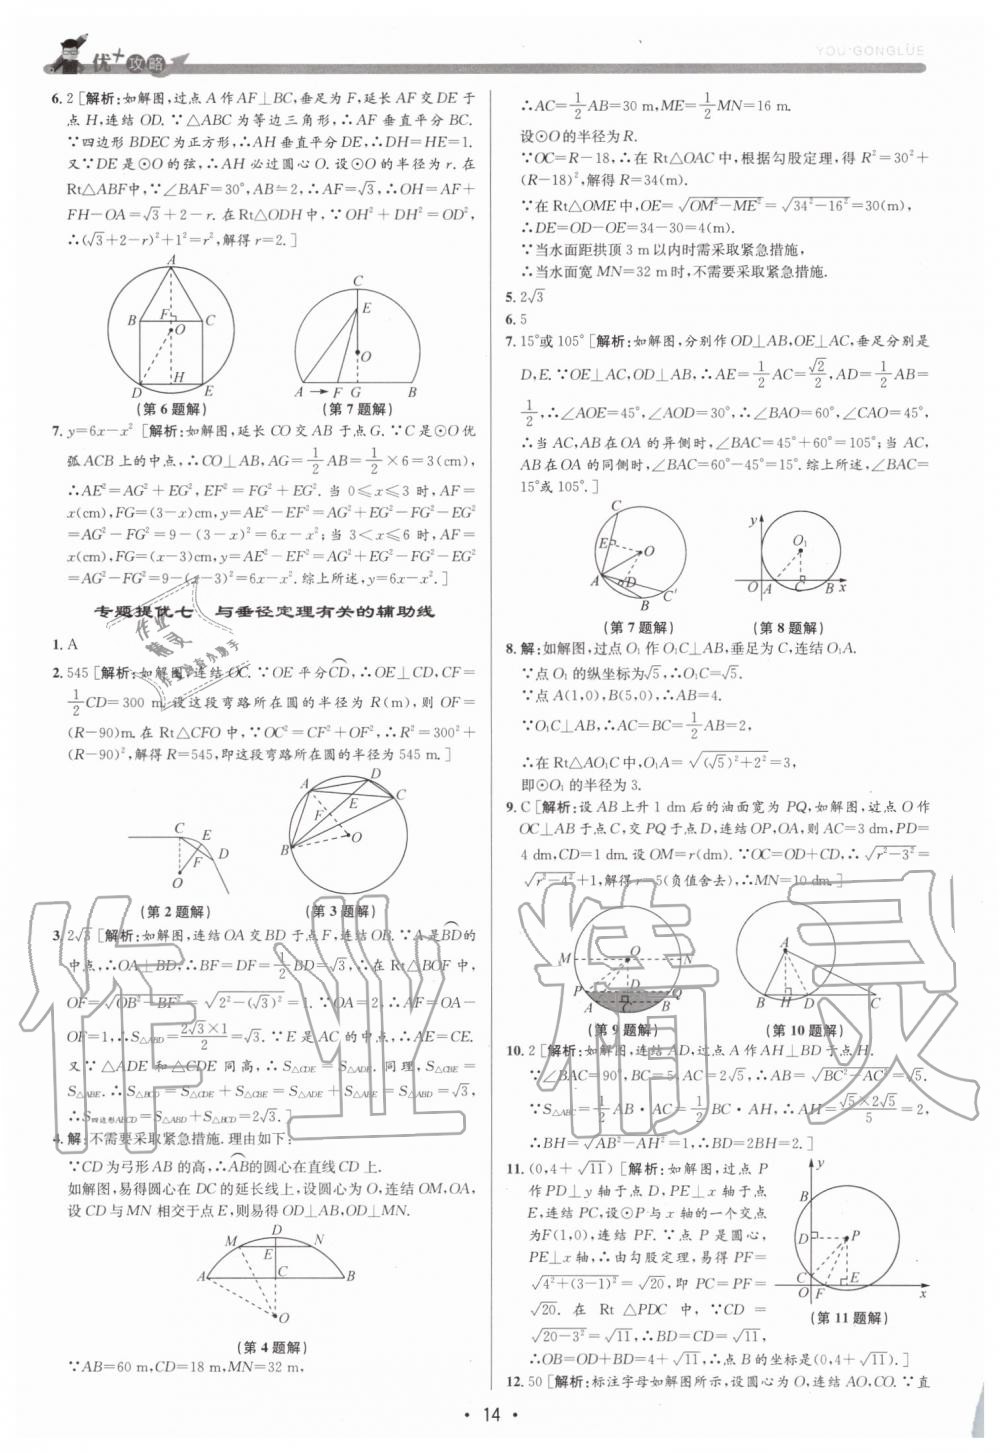 优+攻略
YOU·GONGLÜE
6. 2 [解析:如解图,过点 A 作 AF⊥BC,垂足为 F,延长 AF 交 DE 于
点 H,连结 OD. ∵△ABC 为等边三角形,∴AF 垂直平分 BC.
∵四边形 BDEC 为正方形,∴AH 垂直平分 DE,∴DH=HE=1.
又∵DE 是⊙O 的弦,∴AH 必过圆心 O. 设⊙O 的半径为 r. 在
Rt△ABF中,∵∠BAF=30°,AB=2,∴AF=√3,∴OH=AF+
FH−OA=√3+2−r. 在Rt△ODH中,∵OH²+DH²=OD²,
∴(√3+2−r)²+1²=r²,解得r=2.]
A
B F C
O
D H E
(第 6 题解)
C
E
O
A → F G B
(第 7 题解)
7. y=6x−x² [解析:如解图,延长 CO 交 AB 于点 G. ∵C 是⊙O 优
弧 ACB 上的中点,∴CO⊥AB,AG=1/2 AB=1/2×6=3(cm),
∴AE²=AG²+EG²,EF²=FG²+EG². 当 0≤x≤3 时,AF=
x(cm),FG=(3−x)cm,y=AE²−EF²=AG²+EG²−FG²−EG²
=AG²−FG²=9−(3−x)²=6x−x²;当 3<x≤6 时,AF=
x(cm),FG=(x−3)cm,y=AE²−EF²=AG²+EG²−FG²−EG²
=AG²−FG²=9−(x−3)²=6x−x². 综上所述,y=6x−x².]
专题提优七 与垂径定理有关的辅助线
1. A
2. 545 [解析:如解图,连结 OC. ∵OE 平分⌒CD,∴OE⊥CD,CF=
1/2 CD=300 m. 设这段弯路所在圆的半径为 R(m),则 OF=
(R−90)m. 在 Rt△CFO 中,∵OC²=CF²+OF²,∴R²=300²+
(R−90)²,解得 R=545,即这段弯路所在的圆的半径为 545 m.]
C E
F D
O
(第 2 题解)
A D
E C
F
O
B
(第 3 题解)
3. 2√3 [解析:如解图,连结OA 交BD于点F,连结OB. ∵A是⌒BD的
中点,∴OA⊥BD,∴BF=DF=1/2 BD=√3,∴在 Rt△BOF 中,
OF=√(OB²−BF²)=√(2²−(√3)²)=1. ∵OA=2,∴AF=OA−
OF=1,∴S△ABD=(2√3×1)/2=√3. ∵E 是 AC 的中点,∴AE=CE.
又∵△ADE 和△CDE 同高,∴S△CDE=S△ADE. 同理,S△CBE=
S△ABE. ∴S△BCD=S△CDE+S△CBE=S△ADE+S△ABE=S△ABD=√3,
∴S四边形ABCD=S△ABD+S△BCD=2√3.]
4. 解:不需要采取紧急措施. 理由如下:
∵CD为弓形 AB 的高,∴⌒AB的圆心在直线CD 上.
如解图,易得圆心在 DC 的延长线上,设圆心为 O,连结 OM,OA,
设 CD 与 MN 相交于点 E,则易得 OD⊥AB,OD⊥MN.
D
M E N
A C B
O
(第 4 题解)
∵AB=60 m,CD=18 m,MN=32 m,
∴AC=1/2 AB=30 m,ME=1/2 MN=16 m.
设⊙O 的半径为 R.
∵OC=R−18,∴在 Rt△OAC 中,根据勾股定理,得 R²=30²+
(R−18)²,解得 R=34(m).
∵在 Rt△OME 中,OE=√(OM²−ME²)=√(34²−16²)=30(m),
∴DE=OD−OE=34−30=4(m).
∵当水面距拱顶 3 m 以内时需采取紧急措施,
∴当水面宽 MN=32 m 时,不需要采取紧急措施.
5. 2√3
6. 5
7. 15°或 105° [解析:如解图,分别作 OD⊥AB,OE⊥AC,垂足分别是
D,E. ∵OE⊥AC,OD⊥AB,∴AE=1/2 AC=√2/2,AD=1/2 AB=
1/2,∴∠AOE=45°,∠AOD=30°,∴∠BAO=60°,∠CAO=45°,
∴当 AC,AB 在 OA 的异侧时,∠BAC=45°+60°=105°;当 AC,
AB 在 OA 的同侧时,∠BAC=60°−45°=15°. 综上所述,∠BAC=
15°或 105°.]
C
E O
A D
B C′
(第 7 题解)
y
O₁
O A C B x
(第 8 题解)
8. 解:如解图,过点 O₁ 作 O₁C⊥AB,垂足为 C,连结 O₁A.
∵点 O₁ 的纵坐标为√5,∴O₁C=√5.
∵点 A(1,0),B(5,0),∴AB=4.
∵O₁C⊥AB,∴AC=BC=1/2 AB=2,
∴在 Rt△AO₁C 中,O₁A=√((√5)²+2²)=3,
即⊙O₁ 的半径为 3.
9. C [解析:设 AB 上升 1 dm 后的油面宽为 PQ,如解图,过点 O 作
OC⊥AB 于点 C,交 PQ 于点 D,连结 OP,OA,则 AC=3 dm,PD=
4 dm,CD=1 dm. 设 OM=r(dm). ∵OC=OD+CD,∴√(r²−3²)=
√(r²−4²)+1,解得 r=5(负值舍去),∴MN=10 dm.]
M O N
P D Q
A C B
(第 9 题解)
A
B H D C
(第 10 题解)
10. 2 [解析:如解图,连结 AD,过点 A 作 AH⊥BD 于点 H.
∵∠BAC=90°,BC=5,AC=2√5,∴AB=√(BC²−AC²)=√5.
∵S△ABC=1/2 AB·AC=1/2 BC·AH,∴AH=(√5×2√5)/5=2,
∴BH=√(AB²−AH²)=1,∴BD=2BH=2.]
11. (0,4+√11) [解析:如解图,过点 P
作 PD⊥y 轴于点 D,PE⊥x 轴于点
E,连结 PC,设⊙P 与 x 轴的一个交点
为F(1,0),连结 PF. ∵点 P 是圆心,
PE⊥x 轴,∴由勾股定理,易得 PF=
√(4²+(3−1)²)=√20,即 PC=PF=
√20. 在 Rt△PDC 中,∵CD=
√(20−3²)=√11,∴BD=CD=√11,
∴OB=OD+BD=4+√11,∴点 B 的坐标是(0,4+√11).]
y
B
D P
C
O F E x
(第 11 题解)
12. 50 [解析:标注字母如解图所示,设圆心为 O,连结 AO,CO. ∵直
• 14 •
作业精灵